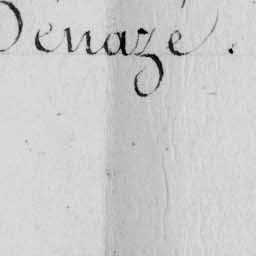 Dénazé.